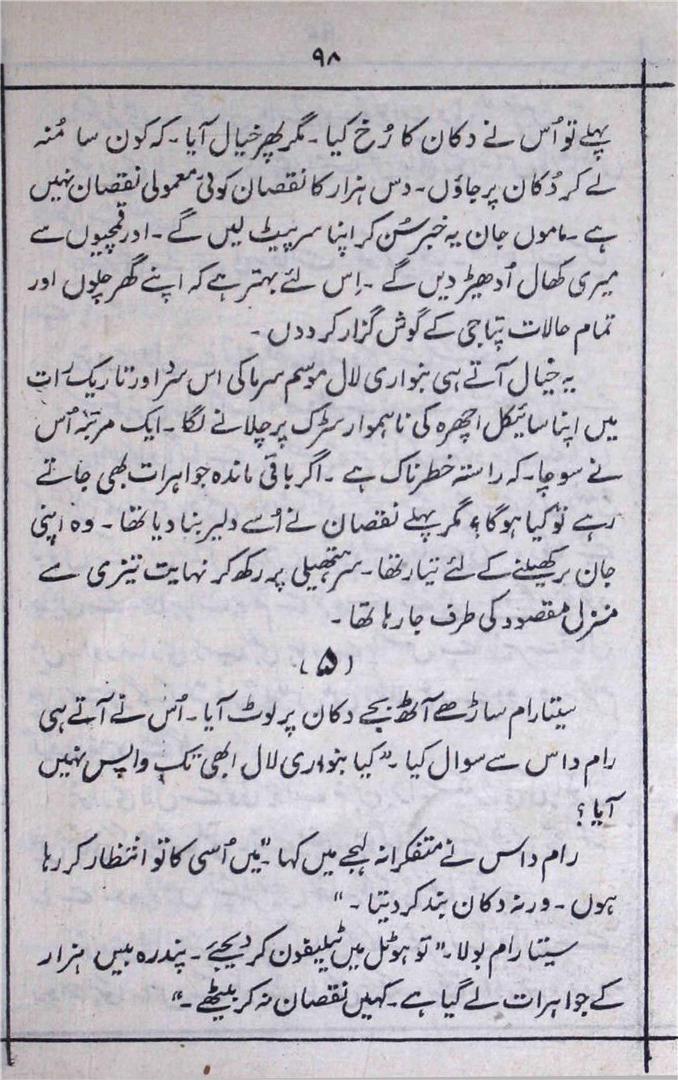 ۹۸
پہلے تو اُس نے دکان کا رُخ کیا ۔ مگر پھر خیال آیا ۔ کہ کون سا مُنہ
لے کر دُکان پر جاؤں ۔ دس ہزار کا نقصان کوئی معمولی نقصان نہیں
ہے ۔ ماموں جان یہ خبر سُن کر اپنا سر پیٹ لیں گے ۔ اور قمچیوں سے
میری کھال اُدھیڑ دیں گے ۔ اِس لئے بہتر ہے کہ اپنے گھر چلوں اور
تمام حالات پتاجی کے گوش گزار کر دوں ۔
یہ خیال آتے ہی بنواری لال موسم سرما کی اس سرد اور تاریک رات
میں اپنا سائیکل اچھرہ کی ناہموار سڑک پر چلانے لگا ۔ ایک مرتبہ اُس
نے سوچا ۔ کہ راستہ خطرناک ہے ۔ اگر باقی ماندہ جواہرات بھی جاتے
رہے تو کیا ہوگا ؟ مگر پہلے نقصان نے اُسے دلیر بنا دیا تھا ۔ وہ اپنی
جان پر کھیلنے کے لئے تیار تھا ۔ سر ہتھیلی پر رکھ کر نہایت تیزی سے
منزلِ مقصود کی طرف جا رہا تھا ۔
(۵)
سیتارام ساڑھے آٹھ بجے دکان پر لوٹ آیا ۔ اُس نے آتے ہی
رام داس سے سوال کیا ۔ "کیا بنواری لال ابھی تک واپس نہیں
آیا ؟
رام داس نے متفکرانہ لہجے میں کہا ۔ "میں اُسی کا تو انتظار کر رہا
ہوں ۔ ورنہ دکان بند کر دیتا ۔ "
سیتا رام بولا ۔ " تو ہوٹل میں ٹیلیفون کر دیجئے ۔ پندرہ بیس ہزار
کے جواہرات لے گیا ہے ۔ کہیں نقصان نہ کر بیٹھے ۔ "